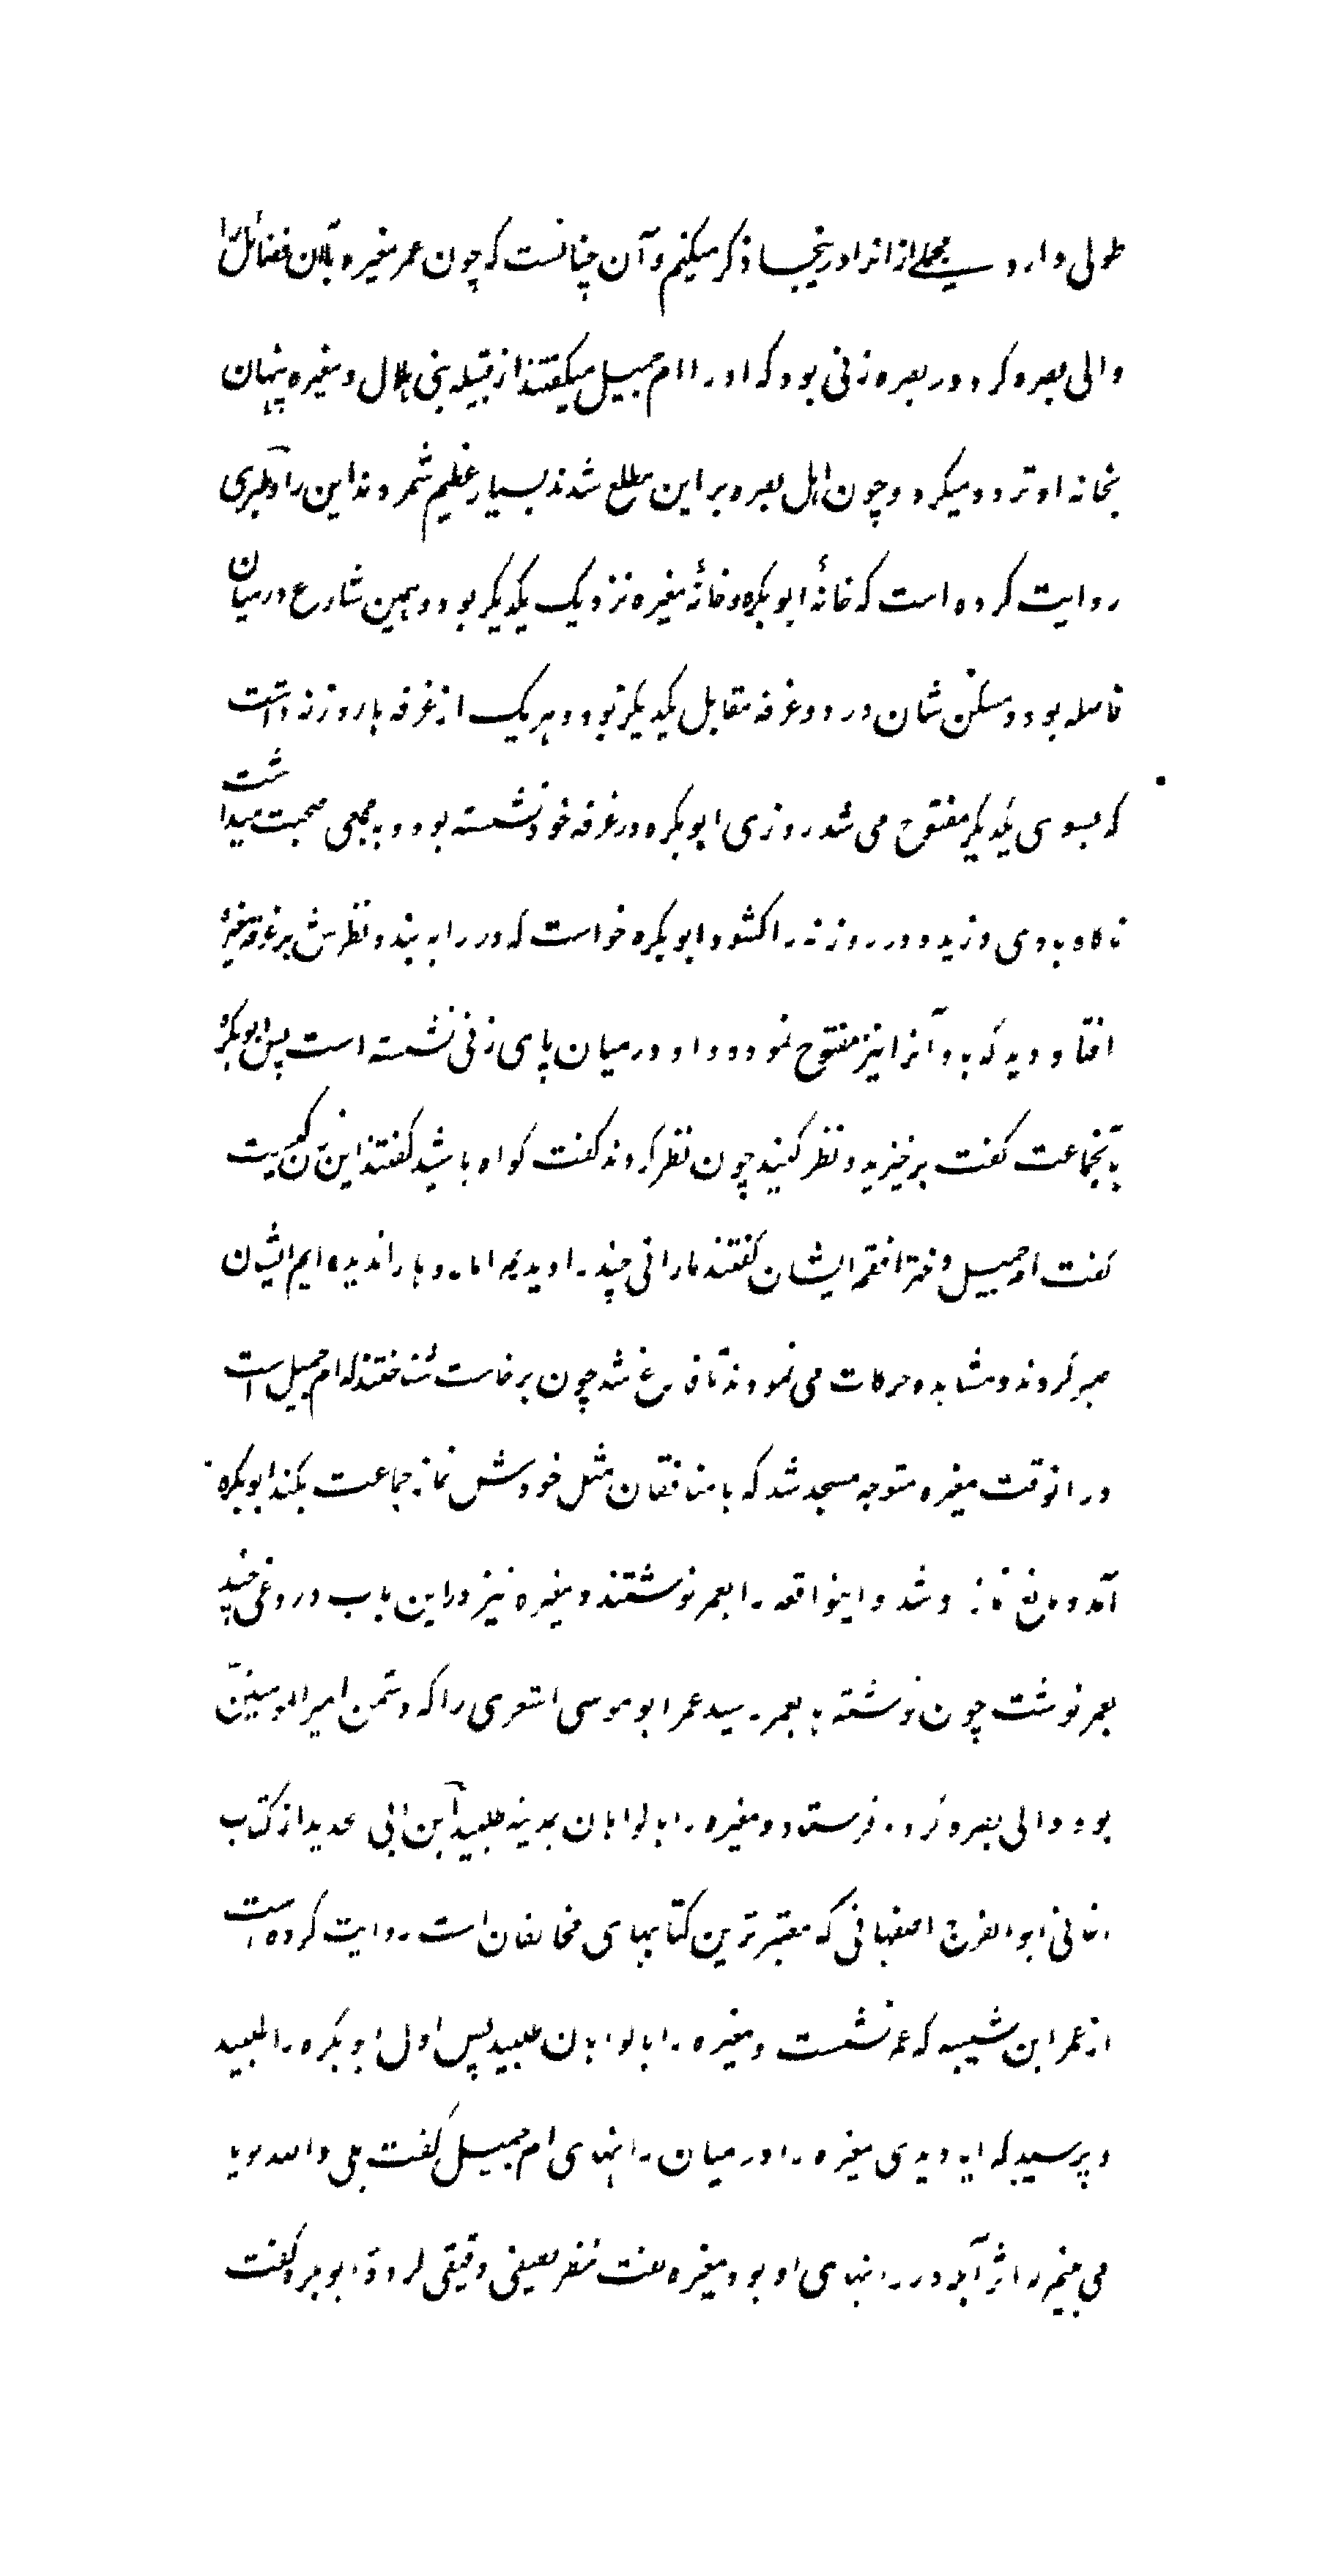 طولی دارد مجملے از انرا درینجا ذکر میکنم و آن چنانست که چون عمر مغیره بآن فضائل را
والی بصره کرد و در بصره زنی بود که او را ام جمیل میگفتند از قبیله بنی هلال و مغیره پنهان
بخانه او تردد میکرد و چون اهل بصره بر این مطلع شدند بسیار عظیم شمردند این را و طبری
روایت کرده است که خانهٔ ابو بکره و خانهٔ مغیره نزدیک یکدیگر بود و همین شارع در میان
فاصله بود و مسکن شان در دو غرفه مقابل یکدیگر بود و هر یک از غرفه ها روزنه داشت
که بسوی یکدیگر مفتوح می شد روزی ابو بکره در غرفه خود نشسته بود و بجمعی صحبت میداشت
ناگاه بادی وزید و در روزنه را کشود ابو بکره خواست که در را به بندد نظرش بر غرفه مغیره
افتاد و دید که باد آنرا نیز مفتوح نموده و او در میان پای زنی نشسته است پس ابو بکره
بآنجماعت گفت برخیزید و نظر کنید چون نظر کردند گفت گواه باشید گفتند این زن کیست
گفت ام جمیل دختر افقم ایشان گفتند ما رانی چند را دیدیم اما رو ها را ندیده ایم ایشان
صبر کردند و مشاهده حرکات می نمودند تا فارغ شد چون برخاست شناختند که ام جمیل است
در انوقت مغیره متوجه مسجد شد که با منافقان مثل خودش نماز جماعت بکند ابو بکره
آمد و مانع نماز او شد و اینواقعه را بعمر نوشتند و مغیره نیز در این باب دروغی چند
بعمر نوشت چون نوشته با بعمر رسید عمر ابو موسی اشعری را که دشمن امیر المومنین
بود والی بصره کرد و فرستاد و مغیره را با گواهان بمدینه طلبید ابن ابی حدید از کتاب
اغانی ابو الفرج اصفهانی که معتبر ترین کتابهای مخالفان است روایت کرده است
از عمر ابن شیبه که عمر نشست و مغیره را با گواهان طلبید پس اول ابو بکره را طلبید
و پرسید که ایا دیدی مغیره را در میان رانهای ام جمیل گفت بلی والله گویا
می بینم اثر آبله در رانهای او بود مغیره گفت نظر دقیقی کردهٔ ابو بکره گفت